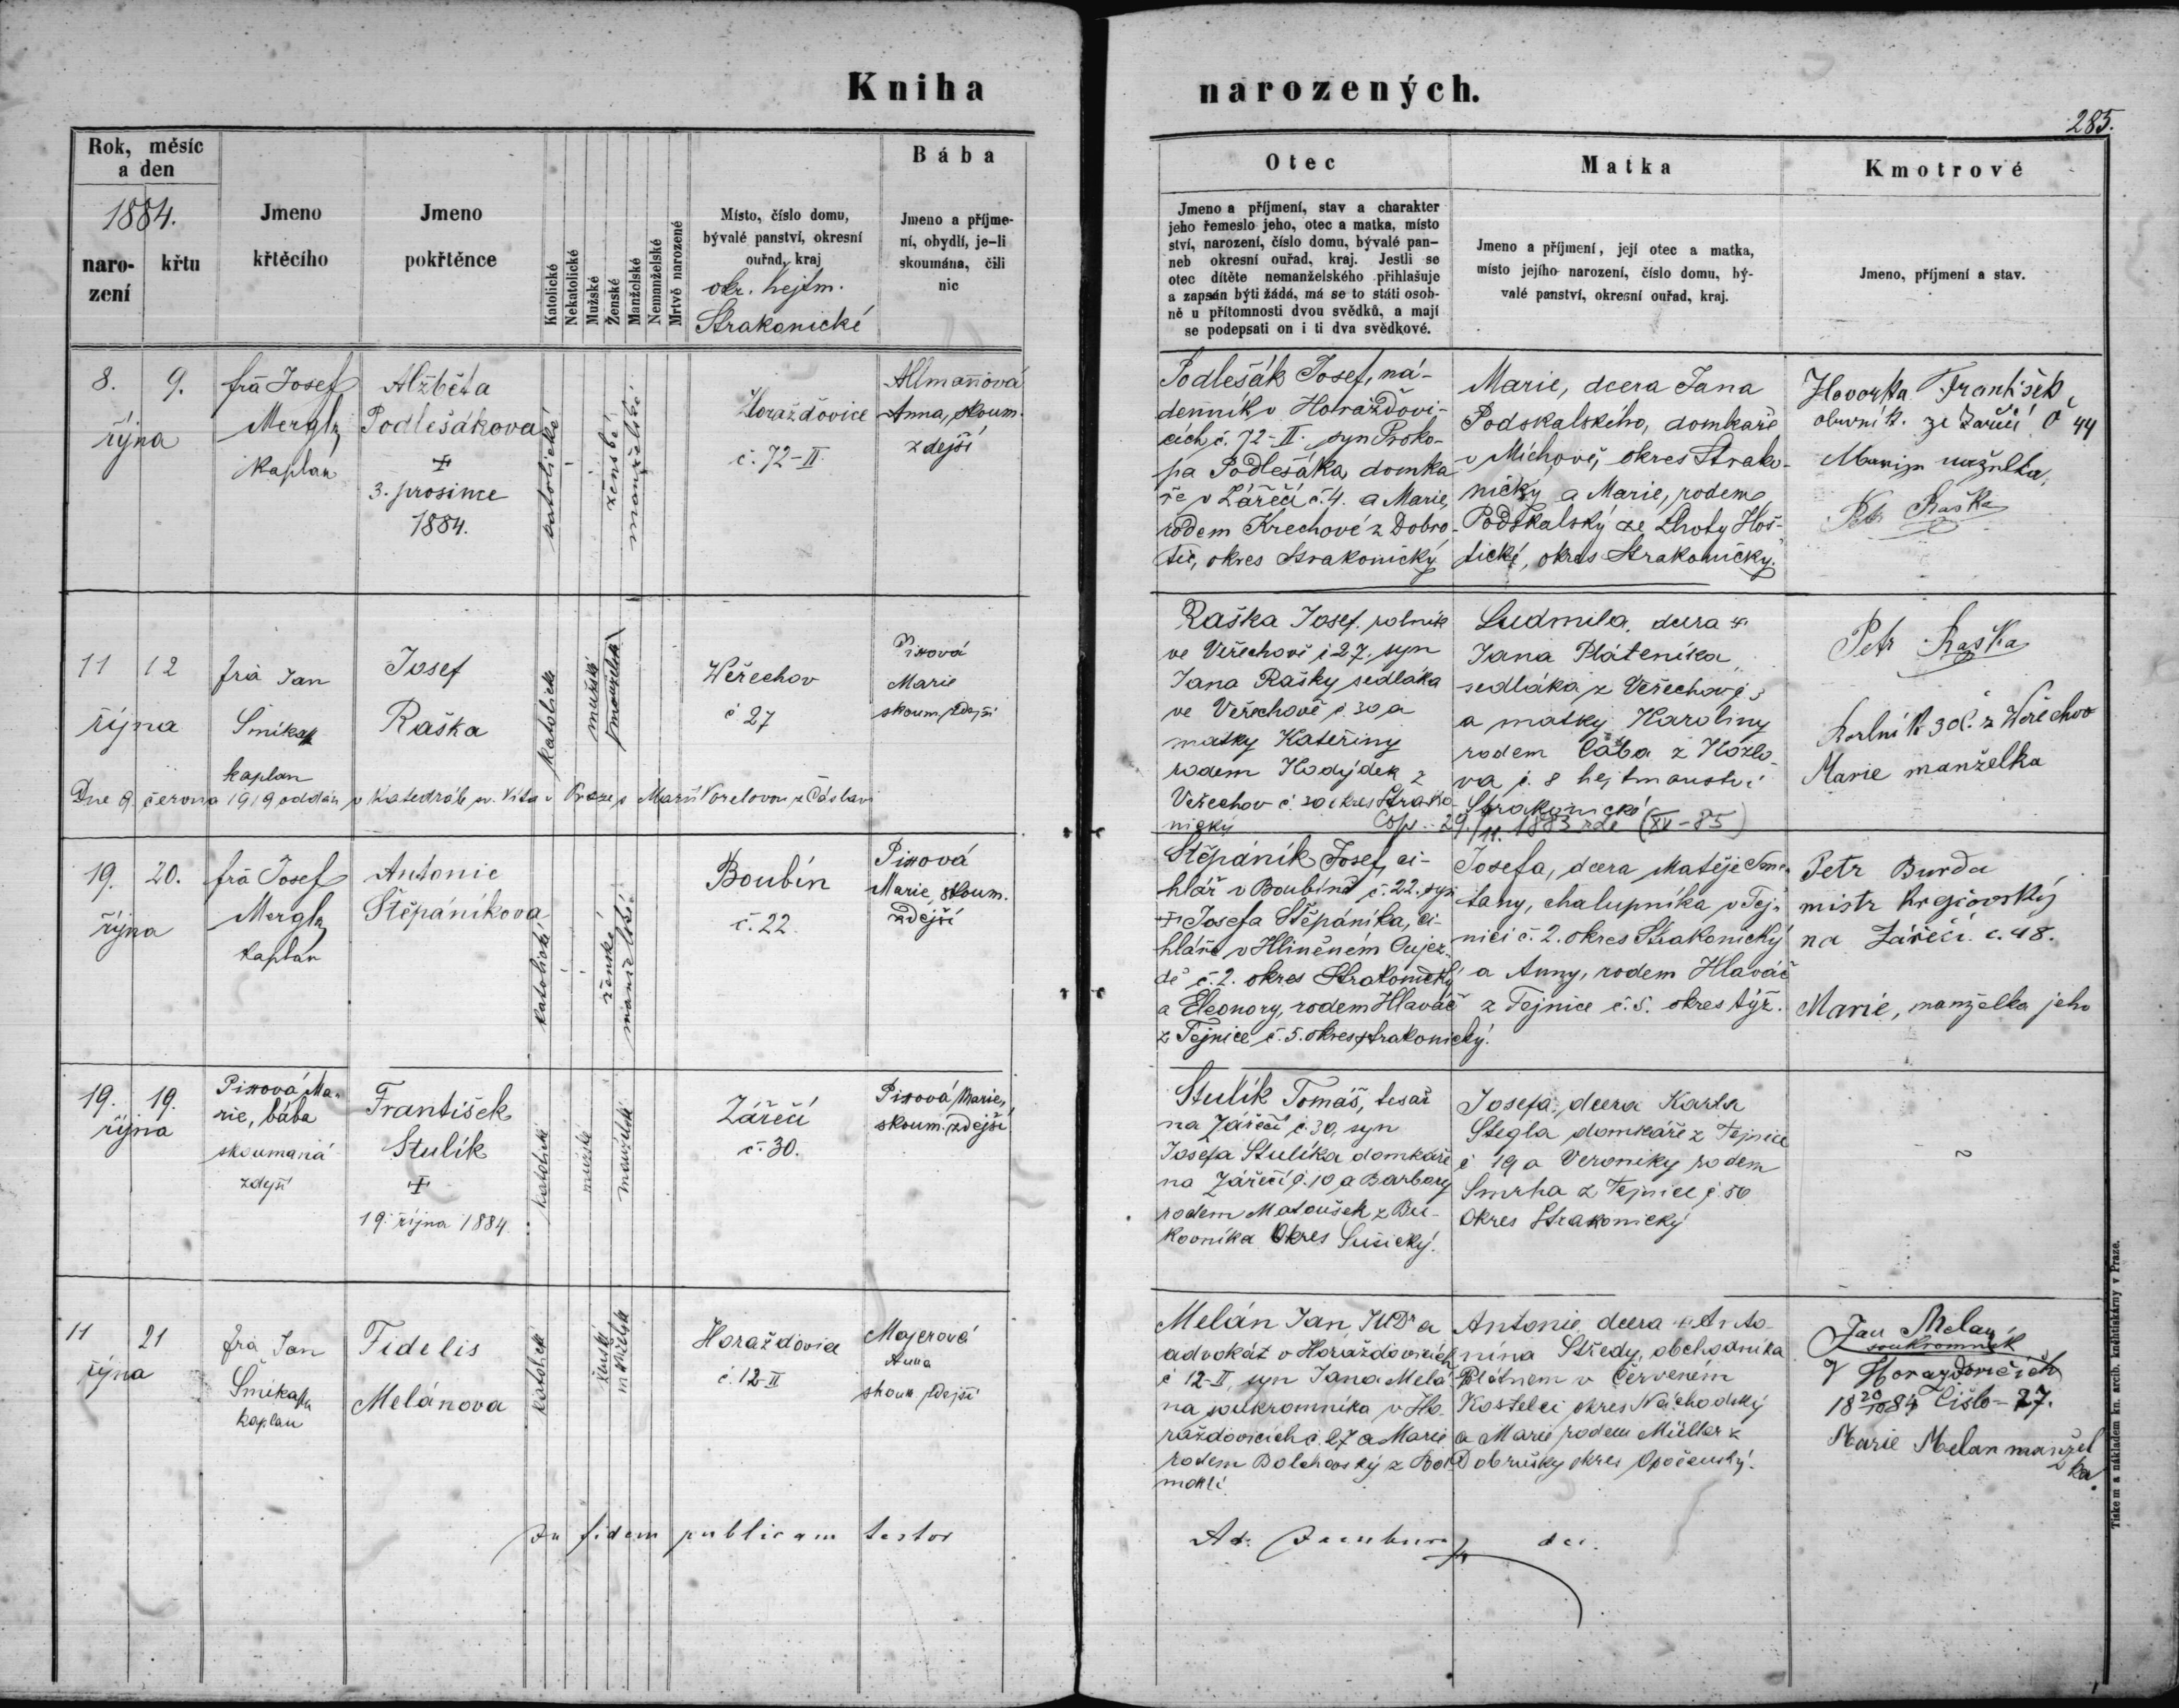 Kniha narozených.
285.
Rok, měsíc
a den
1884.
naro-
zení
křtu
Jmeno
křtěcího
Jmeno
pokřtěnce
Katolické
Nekatolické
Mužské
Ženské
Manželské
Nemanželské
Mrtvě narozené
Místo, číslo domu,
bývalé panství, okresní
ouřad, kraj
okr. hejtm.
Strakonické
Bába
Jmeno a příjme-
ní, obydlí, je-li
skoumána, čili
nic
Otec
Jmeno a příjmení, stav a charakter
jeho řemeslo jeho, otec a matka, místo
ství, narození, číslo domu, bývalé pan-
neb okresní ouřad, kraj. Jestli se
otec dítěte nemanželského přihlašuje
a zapsán býti žádá, má se to státi osob-
ně u přítomnosti dvou svědků, a mají
se podepsati on i ti dva svědkové.
Matka
Jmeno a příjmení, její otec a matka,
místo jejího narození, číslo domu, bý-
valé panství, okresní ouřad, kraj.
Kmotrové
Jmeno, příjmení a stav.
8. 9.
října
frà Josef
Mergl
kaplan
Alžběta
Podlešákova
+
3. prosince
1884.
katolické
ženské
manželské
Horažďovice
č. 72-II.
Allmannová
Anna, skoum.
zdejší
Podlešák Josef, ná-
denník v Horažďovi-
cích č. 72-II. syn Proko-
pa Podlešáka, domka
ře v Zářečí č. 4. a Marie,
rodem Krechové z Dobro-
tic, okres Strakonický
Marie, dcera Jana
Podskalského, domkaře
v Míchově, okres Strako-
nický a Marie, rodem
Podskalský ze Lhoty Hoš-
tické, okres Strakonický.
Hovorka František
obuvník. ze Zařičí č 44
Petr Raška
11 12
října
frà Jan
Šmíka
kaplan
Josef
Raška
katolické
mužské
manželské
Weřechov
č 27
Pixová
Marie
skoum. zdejší
Dne 9 června 1919 oddán v katedrále sv. Víta v Praze s Marií Vorelovou z Čáslavi
Raška Josef. rolník
ve Veřechově č 27, syn
Jana Rašky sedláka
ve Veřechově č. 30 a
matky Kateřiny
rodem Hodýdek z
Veřechov č. 30 okres Strako-
nický
Ludmila, dcera +
Jana Pláteníka
sedláka z Veřechov č 3
a matky Karoliny
rodem Cába z Kozlo-
va č. 8 hejtmanství
Strakonické
Cop. 29./11. 1883 zde (XV-85)
Petr Raška
Rorlník 30 č. z Weřechov
Marie manželka
19. 20.
října
frà Josef
Mergl
kaplan
Antonie
Štěpáníkova
katolické
ženské
manželské
Boubín
č. 22.
Pixová
Marie, skoum.
zdejší
Štěpáník Josef, ci-
hlář v Boubíně č. 22. syn
+ Josefa Štěpáníka, ci-
hláře v Hliněném Oujez-
dě č. 2. okres Strakonický
a Eleonory, rodem Hlaváč
z Tejnice č. 5. okres strakonický.
Josefa, dcera Matěje Sme-
tany, chalupníka v Tej-
nici č. 2. okres Strakonický
a Anny, rodem Hlaváč
z Tejnice č. 5. okres týž.
Petr Burda
mistr krejčovský
na Zářečí. č. 48.
Marie, manželka jeho
19. 19.
října
Pixová Ma-
rie, bába
skoumaná
zdejší
František
Stulík
+
19. října 1884.
katolické
mužské
manželské
Zářečí
č. 30.
Pixová Marie,
skoum. zdejší
Stulík Tomáš, tesař
na Zářečí č. 30, syn
Josefa Stulíka domkáře
na Zářečí č. 10 a Barbory
rodem Matoušek z Bu-
kovníka Okres Sušický.
Josefa, dcera Karla
Stegla domkáře z Tejnice
č 19 a Veroniky rodem
Smrha z Tejnice č. 50
Okres Strakonický
~
11 21
října
frà Jan
Šmíka
kaplan
Fidelis
Melánova
katolické
ženské
manželské
Horažďovice
č. 12-II
Majerová
Anna
skoum zdejší
Melán Jan, JUDr a
advokát v Horažďovicích
č 12-II, syn Jana Melá-
na soukromníka v Ho-
ražďovicích č. 27 a Marie
rodem Bolehovský z Bol
Antonie, dcera + Anto-
nína Středy, obchodníka
Plátnem v Červeném
Kostelci okres Náchodský
a Marie rodem Müller z
Dobrušky okres Opočenský.
Jan Melan
soukromník
V Horazdovičich
18 20/10 84 Čislo - 27.
Marie Melan manžel
ka.
In fidem publicam testor
Tiskem a nákladem kn. arcib. knihtiskárny v Praze.